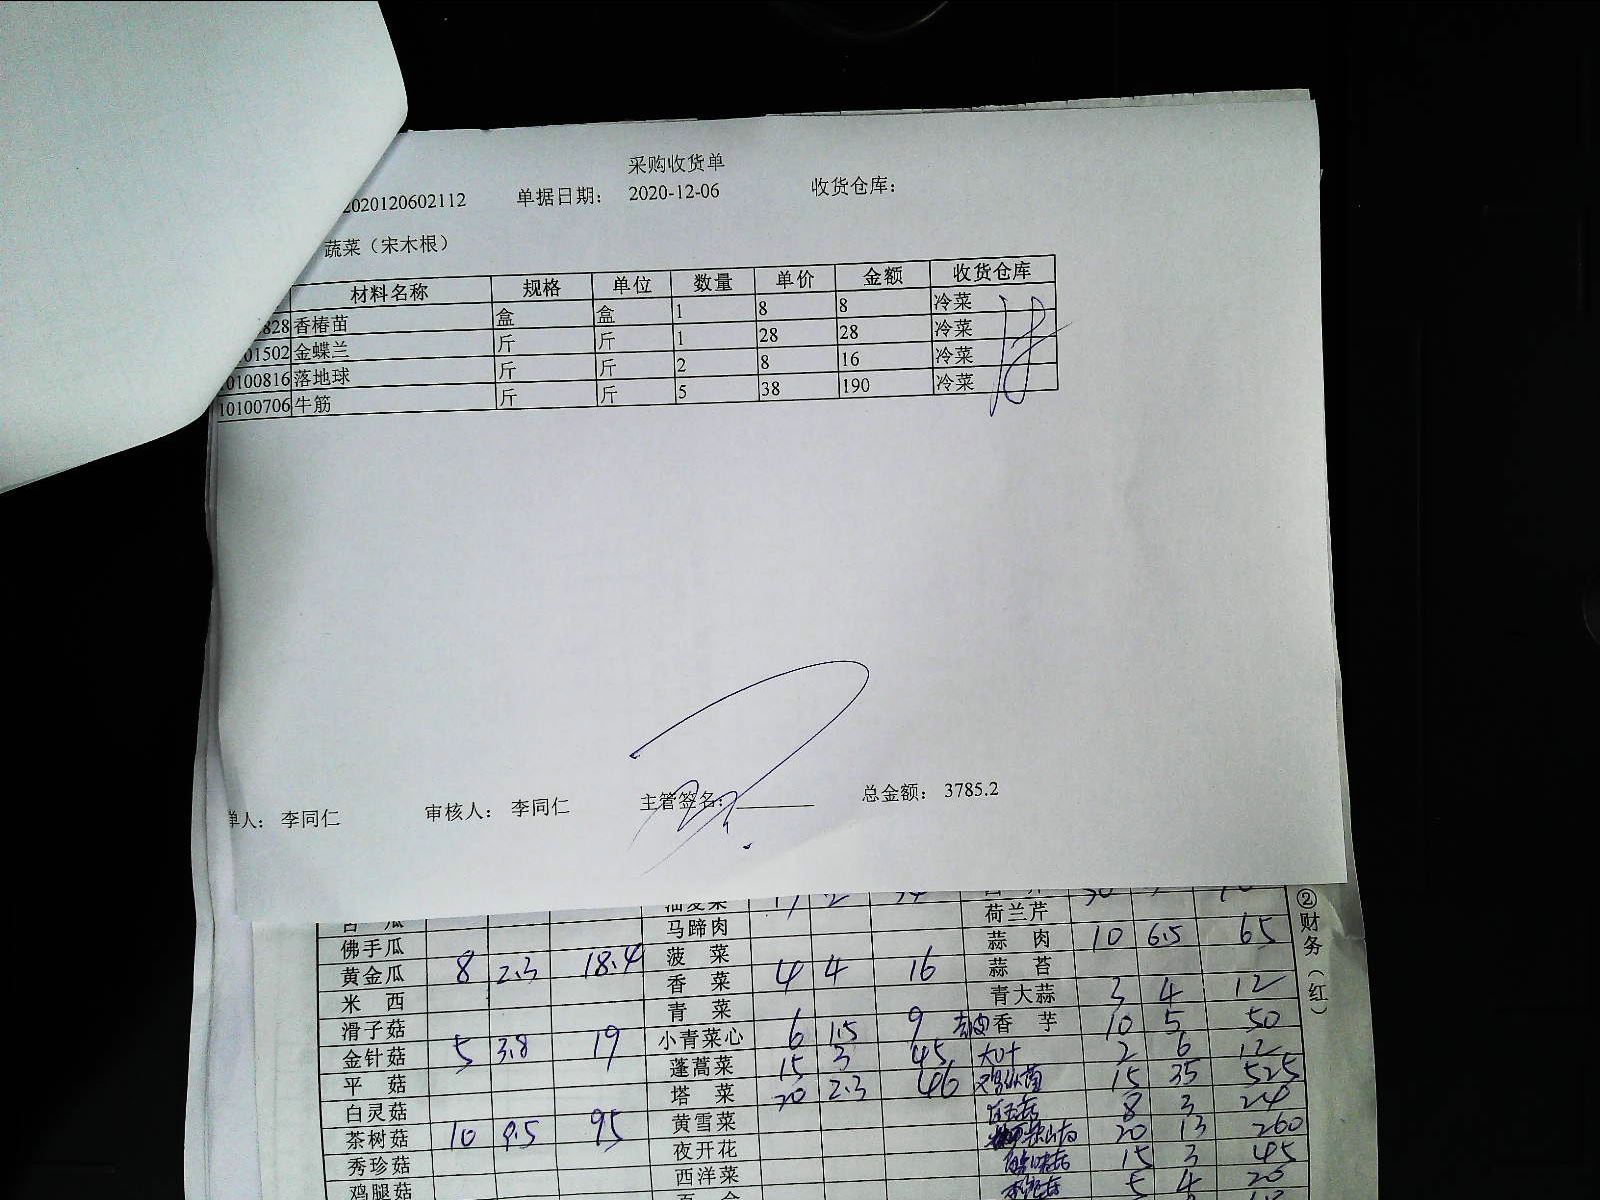 采购收货单
2020120602112 单据日期: 2020-12-06 收货仓库:
蔬菜（宋木根）
材料名称 规格 单位 数量 单价 金额 收货仓库
828 香椿苗 盒 盒 1 8 8 冷菜
01502 金蝶兰 斤 斤 1 28 28 冷菜
0100816 落地球 斤 斤 2 8 16 冷菜
10100706 牛筋 斤 斤 5 38 190 冷菜
单人: 李同仁 审核人: 李同仁 主管签名: 总金额: 3785.2
②财务（红）
荷兰芹
佛手瓜 马蹄肉 蒜肉 10 6.5 65
黄金瓜 8 2.3 18.4 菠菜 蒜苔
米西 香菜 4 4 16 青大蒜 3 4 12
滑子菇 青菜 去皮香芋 10 5 50
金针菇 5 3.8 19 小青菜心 6 1.5 9 大叶 2 6 12
平菇 蓬蒿菜 15 3 45 15 35 525
白灵菇 塔菜 20 2.3 46 8 3 24
茶树菇 10 9.5 95 黄雪菜 20 13 260
秀珍菇 夜开花 15 3 45
鸡腿菇 西洋菜 5 4 20